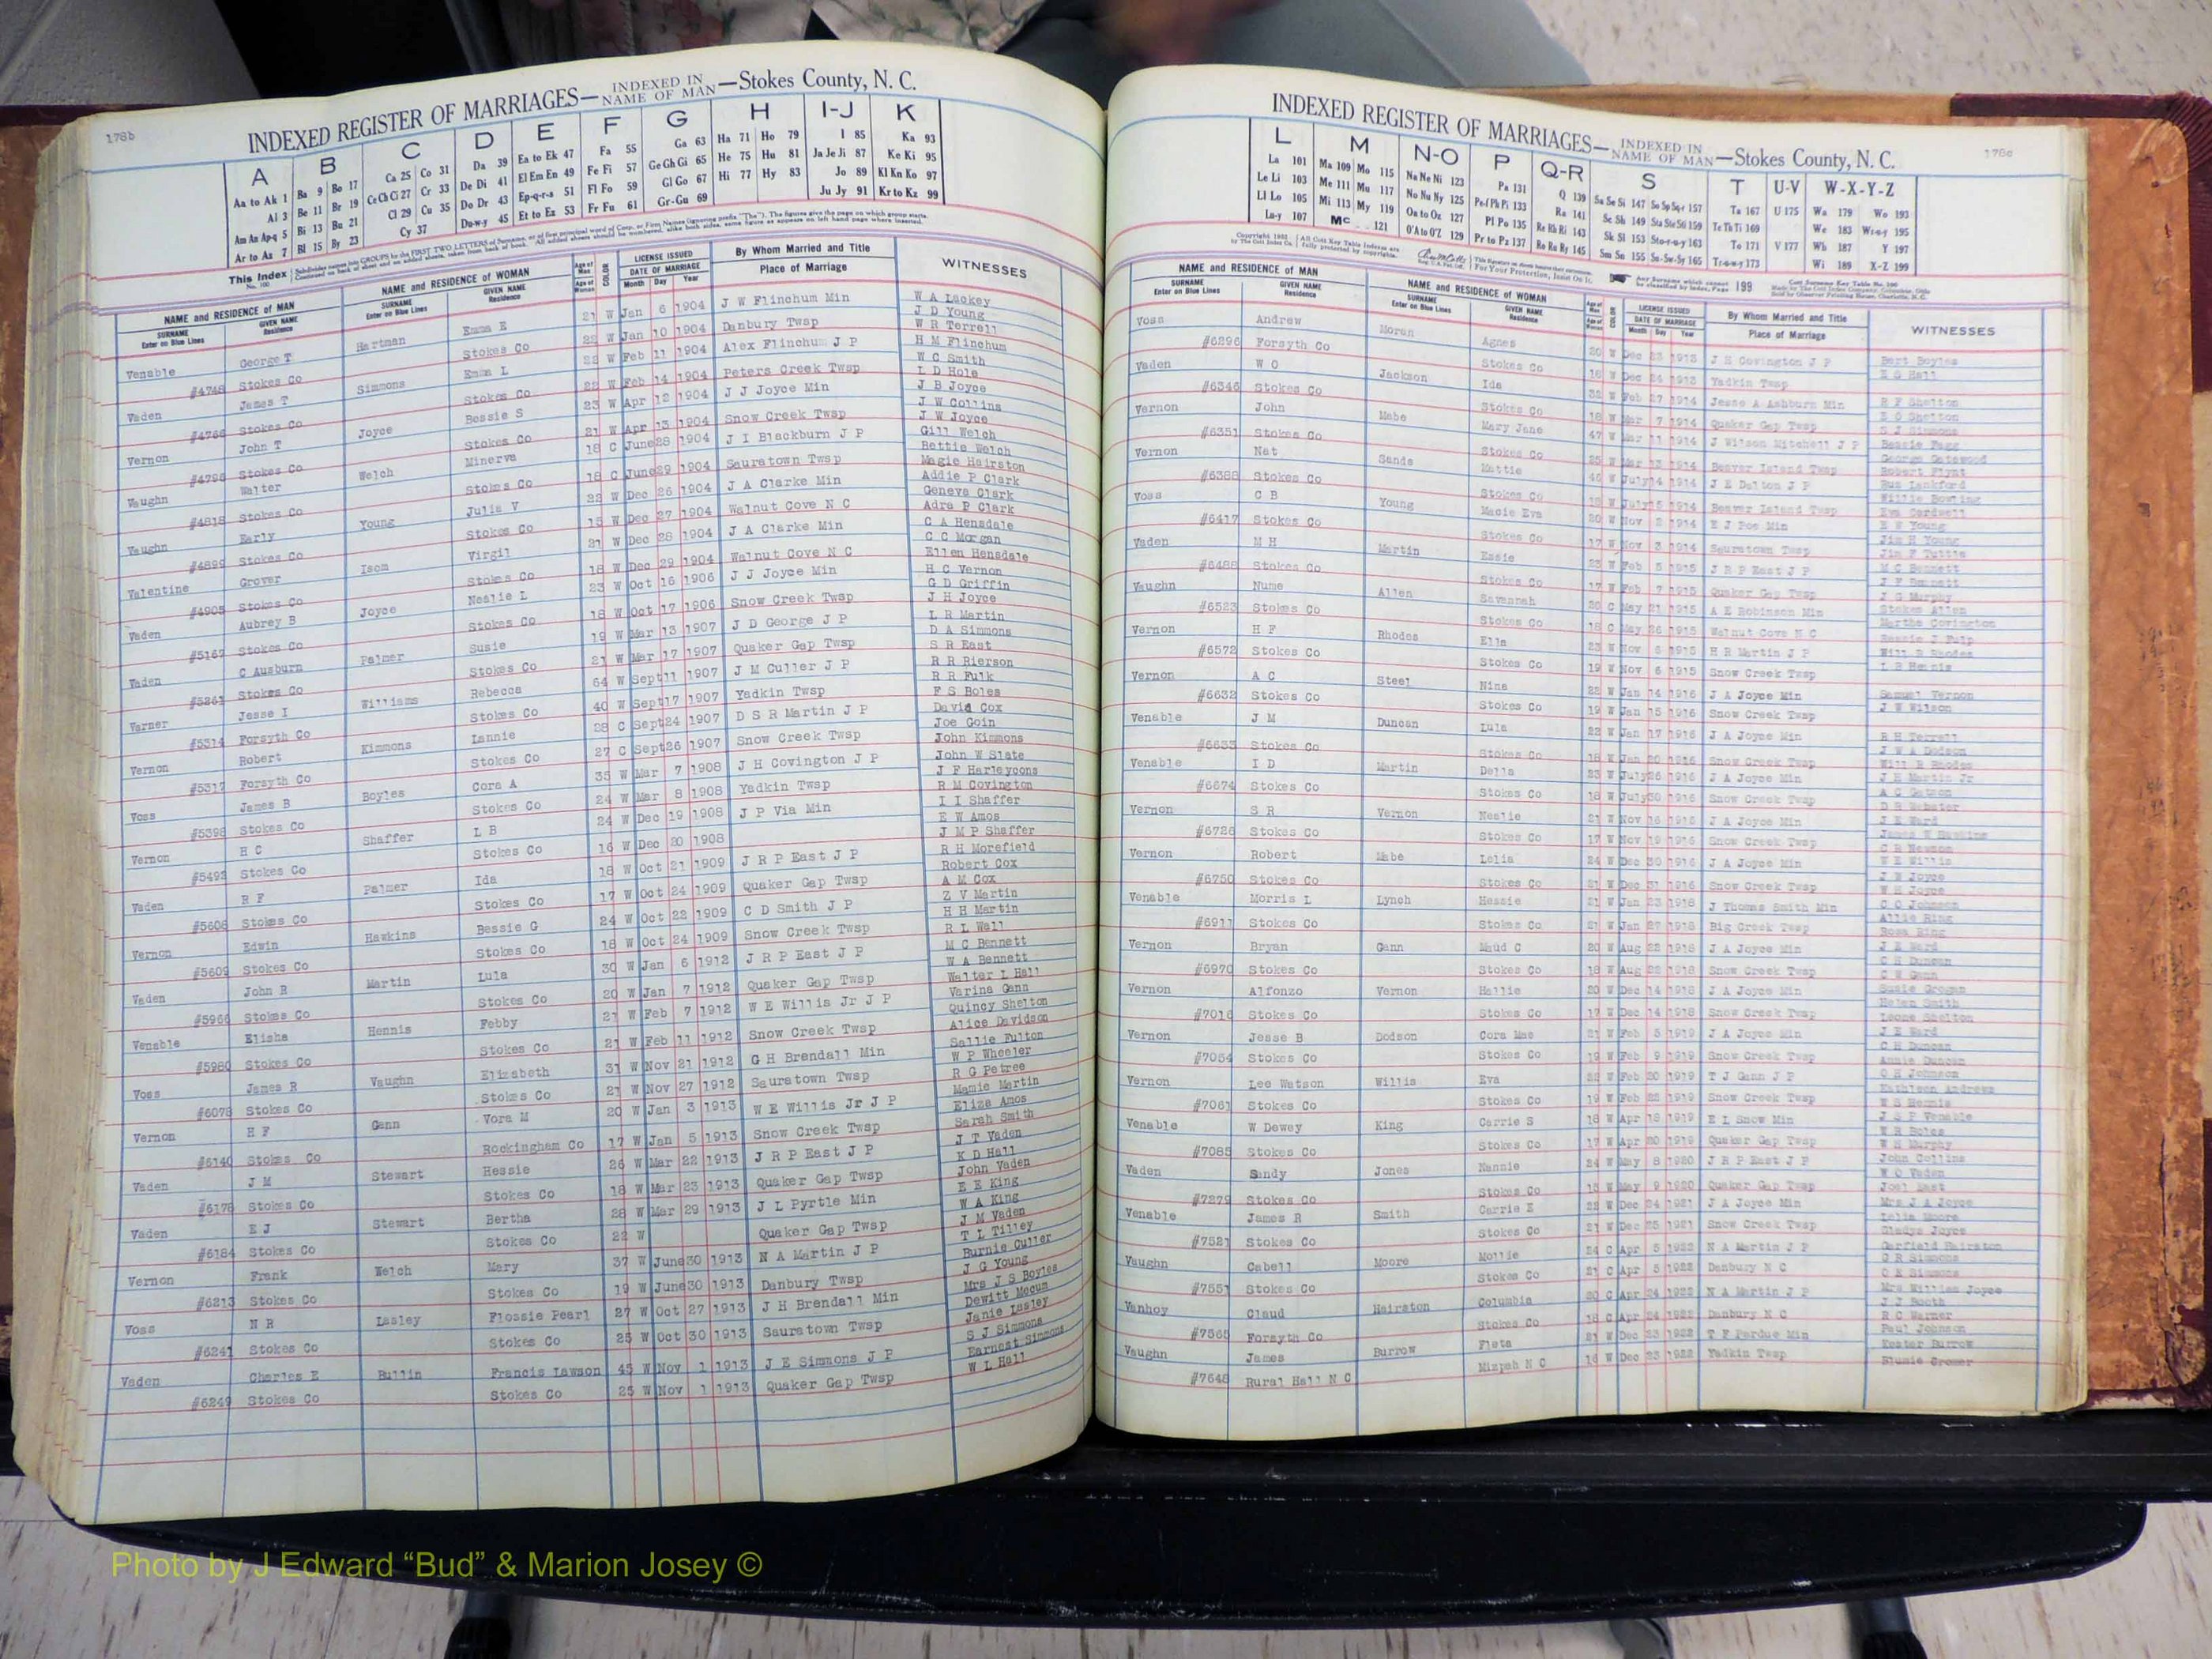 178b
INDEXED REGISTER OF MARRIAGES—INDEXED IN NAME OF MAN—Stokes County, N. C.
A B C D E F G H I-J K
Aa to Ak 1 Ba 9 Bo 17 Ca 25 Co 31 Da 39 Ea to Ek 47 Fa 55 Ga 63 Ha 71 Ho 79 I 85 Ka 93
Al 3 Be 11 Br 19 Ce Ch Ci 27 Cr 33 De Di 41 El Em En 49 Fe Fi 57 Ge Gh Gi 65 He 75 Hu 81 Ja Je Ji 87 Ke Ki 95
Am An Ap-q 5 Bi 13 Bu 21 Cl 29 Cu 35 Do Dr 43 Ep-q-r-s 51 Fl Fo 59 Gl Go 67 Hi 77 Hy 83 Jo 89 Kl Kn Ko 97
Ar to Az 7 Bl 15 By 23 Cy 37 Du-w-y 45 Et to Ez 53 Fr Fu 61 Gr-Gu 69 Ju Jy 91 Kr to Kz 99
NAME and RESIDENCE of MAN NAME and RESIDENCE of WOMAN LICENSE ISSUED By Whom Married and Title WITNESSES
SURNAME Enter on Blue Lines GIVEN NAME Residence SURNAME Enter on Blue Lines GIVEN NAME Residence Age of Man Age of Woman COLOR DATE OF MARRIAGE Month Day Year Place of Marriage
Venable George T Hartman Emma E 21 W Jan 6 1904 J W Flinchum Min W A Lackey
J D Young
#4748 Stokes Co Stokes Co W Jan 10 1904 Danbury Twsp W R Terrell
Vaden James T Simmons Emma L W Feb 11 1904 Alex Flinchum J P H M Flinchum
W C Smith
Stokes Co Stokes Co 22 W Feb 14 1904 Peters Creek Twsp L D Hole
Vernon John T Joyce Bessie S 23 W Apr 12 1904 J J Joyce Min J B Joyce
J W Collins
#4796 Stokes Co Stokes Co 21 W Apr 13 1904 Snow Creek Twsp J W Joyce
Vaughn Walter Welch Minerva 18 C June28 1904 J I Blackburn J P Gill Welch
Bettie Welch
#4818 Stokes Co Stokes Co 18 C June29 1904 Sauratown Twsp Magie Hairston
Vaughn Early Young Julia V 22 W Dec 26 1904 J A Clarke Min Addie P Clark
Geneva Clark
#4899 Stokes Co Stokes Co 15 W Dec 27 1904 Walnut Cove N C Adra P Clark
Valentine Grover Isom Virgil 21 W Dec 28 1904 J A Clarke Min C A Hensdale
C C Morgan
#4905 Stokes Co Stokes Co 18 W Dec 29 1904 Walnut Cove N C Ellen Hensdale
Vaden Aubrey B Joyce Nealie L 23 W Oct 16 1906 J J Joyce Min H C Vernon
G D Griffin
Stokes Co Stokes Co 18 W Oct 17 1906 Snow Creek Twsp J H Joyce
Vaden C Ausburn Palmer Susie 19 W Mar 13 1907 J D George J P L R Martin
D A Simmons
#5261 Stokes Co Stokes Co 21 W Mar 17 1907 Quaker Gap Twsp S R East
Varner Jesse I Williams Rebecca 64 W Sept11 1907 J M Culler J P R R Rierson
R R Fulk
#5314 Forsyth Co Stokes Co 40 W Sept17 1907 Yadkin Twsp F S Boles
Vernon Robert Kimmons Lannie 28 C Sept24 1907 D S R Martin J P David Cox
Joe Goin
#5317 Forsyth Co Stokes Co 27 C Sept26 1907 Snow Creek Twsp John Kimmons
Voss James B Boyles Cora A 35 W Mar 7 1908 J H Covington J P John W Slate
J F Harleycons
#5398 Stokes Co Stokes Co 24 W Mar 8 1908 Yadkin Twsp R M Covington
Vernon H C Shaffer L B 24 W Dec 19 1908 J P Via Min I I Shaffer
E W Amos
#5493 Stokes Co Stokes Co 16 W Dec 20 1908 J M P Shaffer
Vaden R F Palmer Ida 18 W Oct 21 1909 J R P East J P R H Morefield
Robert Cox
Stokes Co Stokes Co 17 W Oct 24 1909 Quaker Gap Twsp A M Cox
Vernon Edwin Hawkins Bessie G 24 W Oct 22 1909 C D Smith J P Z V Martin
H H Martin
#5609 Stokes Co Stokes Co 18 W Oct 24 1909 Snow Creek Twsp R L Wall
Vaden John R Martin Lula 30 W Jan 6 1912 J R P East J P M C Bennett
W A Bennett
Stokes Co Stokes Co 20 W Jan 7 1912 Quaker Gap Twsp Walter L Hall
Venable Elisha Hennis Febby 21 W Feb 7 1912 W E Willis Jr J P Varina Gann
Quincy Shelton
#5980 Stokes Co Stokes Co 21 W Feb 11 1912 Snow Creek Twsp Alice Davidson
Voss James R Vaughn Elizabeth 31 W Nov 21 1912 G H Brendall Min Sallie Fulton
W P Wheeler
#6078 Stokes Co Stokes Co 21 W Nov 27 1912 Sauratown Twsp R G Petree
Vernon H F Gann Vora M 20 W Jan 3 1913 W E Willis Jr J P Mamie Martin
Eliza Amos
#6140 Stokes Co Rockingham Co 17 W Jan 5 1913 Snow Creek Twsp Sarah Smith
Vaden J M Stewart Hessie 26 W Mar 22 1913 J R P East J P J T Vaden
K D Hall
#6178 Stokes Co Stokes Co 18 W Mar 23 1913 Quaker Gap Twsp John Vaden
Vaden E J Stewart Bertha 28 W Mar 29 1913 J L Pyrtle Min E E King
W A King
#6184 Stokes Co Stokes Co 22 W Quaker Gap Twsp J M Vaden
Vernon Frank Welch Mary 37 W June30 1913 N A Martin J P T L Tilley
Burnie Culler
#6213 Stokes Co Stokes Co 19 W June30 1913 Danbury Twsp J G Young
Voss N R Lasley Flossie Pearl 27 W Oct 27 1913 J H Brendall Min Mrs J S Boyles
Dewitt Mecum
#6241 Stokes Co Stokes Co 25 W Oct 30 1913 Sauratown Twsp Janie Lasley
Vaden Charles E Bullin Francis Lawson 45 W Nov 1 1913 J E Simmons J P S J Simmons
Earnest Simmons
#6249 Stokes Co Stokes Co 25 W Nov 1 1913 Quaker Gap Twsp W L Hall
178c
INDEXED REGISTER OF MARRIAGES—INDEXED IN NAME OF MAN—Stokes County, N. C.
L M N-O P Q-R S T U-V W-X-Y-Z
La 101 Ma 109 Mo 115 Na Ne Ni 123 Pa 131 Q 139 Sa Se Si 147 So Sp Sq-r 157 Ta 167 U 175 Wa 179 Wo 193
Le Li 103 Me 111 Mu 117 No Nu Ny 125 Pe-f Ph Pi 133 Ra 141 Sc Sh 149 Sta Ste Sti 159 Te Th Ti 169 We 183 Wr-u-y 195
Ll Lo 105 Mi 113 My 119 Oa to Oz 127 Pl Po 135 Re Rh Ri 143 Sk Sl 153 Sto-r-u-y 163 To 171 V 177 Wh 187 Y 197
Lu-y 107 Mc 121 O'A to O'Z 129 Pr to Pz 137 Ro Ru Ry 145 Sm Sn 155 Su-Sw-Sy 165 Tr-u-w-y 173 Wi 189 X-Z 199
NAME and RESIDENCE of MAN NAME and RESIDENCE of WOMAN LICENSE ISSUED By Whom Married and Title WITNESSES
SURNAME Enter on Blue Lines GIVEN NAME Residence SURNAME Enter on Blue Lines GIVEN NAME Residence DATE OF MARRIAGE Month Day Year Place of Marriage
Voss Andrew Moran Agnes W Dec 1913 J H Covington J P Bert Boyles
#6296 Forsyth Co Stokes Co W Dec 24 1913 Yadkin Twsp E G Hall
Vaden W O Jackson Ida W Feb 27 1914 Jesse A Ashburn Min R F Shelton
#6346 Stokes Co Stokes Co 18 W Mar 7 1914 Quaker Gap Twsp S J Simmons
Vernon John Mabe Mary Jane 47 W Mar 11 1914 J Wilson Mitchell J P
#6351 Stokes Co Stokes Co W Mar 1914 Beaver Island Twsp Robert Flynt
Vernon Nat Sands Mattie W July14 1914 J E Dalton J P Gus Lankford
#6388 Stokes Co Stokes Co W July15 1914 Beaver Island Twsp
Voss C B Young Macie Eva 20 W Nov 2 1914 E J Poe Min E W Young
Jim H Young
#6417 Stokes Co Stokes Co 17 W Nov 3 1914 Sauratown Twsp Jim F Tuttle
Vaden M H Martin Essie W Feb 5 1915 J R P East J P M C Bennett
#6488 Stokes Co Stokes Co 17 W Feb 7 1915 Quaker Gap Twsp J G Murphy
Vaughn Nume Allen Savannah C May 21 1915 A E Robinson Min Stokes Allen
Martha Covington
#6523 Stokes Co Stokes Co 18 C May 26 1915 Walnut Cove N C
Vernon H F Rhodes Ella 23 W Nov 1915 H R Martin J P Will R Rhodes
#6572 Stokes Co Stokes Co 19 W Nov 6 1915 Snow Creek Twsp
Vernon A C Steel Nina 22 W Jan 14 1916 J A Joyce Min Samuel Vernon
J W Wilson
#6632 Stokes Co Stokes Co 19 W Jan 15 1916 Snow Creek Twsp
Venable J M Duncan Lula 22 W Jan 17 1916 J A Joyce Min R H Terrell
J W A Dodson
#6633 Stokes Co Stokes Co 18 W Jan 20 1916 Snow Creek Twsp Will R Rhodes
Venable I D Martin Della 23 W July26 1916 J A Joyce Min J H Martin Jr
#6674 Stokes Co Stokes Co 18 W July30 1916 Snow Creek Twsp D R Webster
Vernon S R Vernon Nealie 21 W Nov 16 1916 J A Joyce Min J E Ward
#6726 Stokes Co Stokes Co 17 W Nov 19 1916 Snow Creek Twsp
Vernon Robert Mabe Lelia 24 W Dec 30 1916 J A Joyce Min W E Willis
J W Joyce
#6750 Stokes Co Stokes Co 21 W Dec 31 1916 Snow Creek Twsp W H Joyce
Venable Morris L Lynch Hessie 21 W Jan 23 1918 J Thomas Smith Min C O Johnson
Allie Ring
#6911 Stokes Co Stokes Co 21 W Jan 27 1918 Big Creek Twsp Rosa Ring
Vernon Bryan Gann Maud C 20 W Aug 22 1918 J A Joyce Min J E Ward
C H Duncan
#6970 Stokes Co Stokes Co 18 W Aug 22 1918 Snow Creek Twsp C W Gann
Vernon Alfonzo Vernon Hallie 20 W Dec 14 1918 J A Joyce Min Susie Grogan
Helen Smith
#7016 Stokes Co Stokes Co 17 W Dec 14 1918 Snow Creek Twsp Leone Shelton
Vernon Jesse B Dodson Cora Mae 21 W Feb 1919 J A Joyce Min J E Ward
C H Duncan
#7054 Stokes Co Stokes Co 19 W Feb 9 1919 Snow Creek Twsp Annie Duncan
Vernon Lee Watson Willis Eva 22 W Feb 20 1919 T J Gann J P O H Johnson
Kathleen Andrews
#7061 Stokes Co Stokes Co 19 W Feb 22 1919 Snow Creek Twsp W S Hennis
Venable W Dewey King Carrie S 18 W Apr 18 1919 E L Snow Min J S P Venable
W R Boles
#7085 Stokes Co Stokes Co 17 W Apr 20 1919 Quaker Gap Twsp W H Murphy
Vaden Sandy Jones Nannie 24 W May 8 1920 J R P East J P John Collins
W O Vaden
#7279 Stokes Co Stokes Co W May 9 1920 Quaker Gap Twsp Joel East
Venable James R Smith Carrie E 22 W Dec 24 1921 J A Joyce Min Mrs J A Joyce
Lelia Moore
#7521 Stokes Co Stokes Co 21 W Dec 25 1921 Snow Creek Twsp Gladys Joyce
Vaughn Cabell Moore Mollie 24 C Apr 5 1922 N A Martin J P Garfield Hairston
O R Simmons
#7551 Stokes Co Stokes Co 21 C Apr 5 1922 Danbury N C O E Simmons
Vanhoy Claud Hairston Columbia 20 C Apr 24 1922 N A Martin J P Mrs William Joyce
J J Booth
#7565 Forsyth Co Stokes Co 18 C Apr 24 1922 Danbury N C R C Warner
Vaughn James Burrow Fleta 21 W Dec 23 1922 T F Perdue Min Paul Johnson
Kester Burrow
#7648 Rural Hall N C Mizpah N C 16 W Dec 23 1922 Yadkin Twsp
Photo by J Edward “Bud” & Marion Josey ©